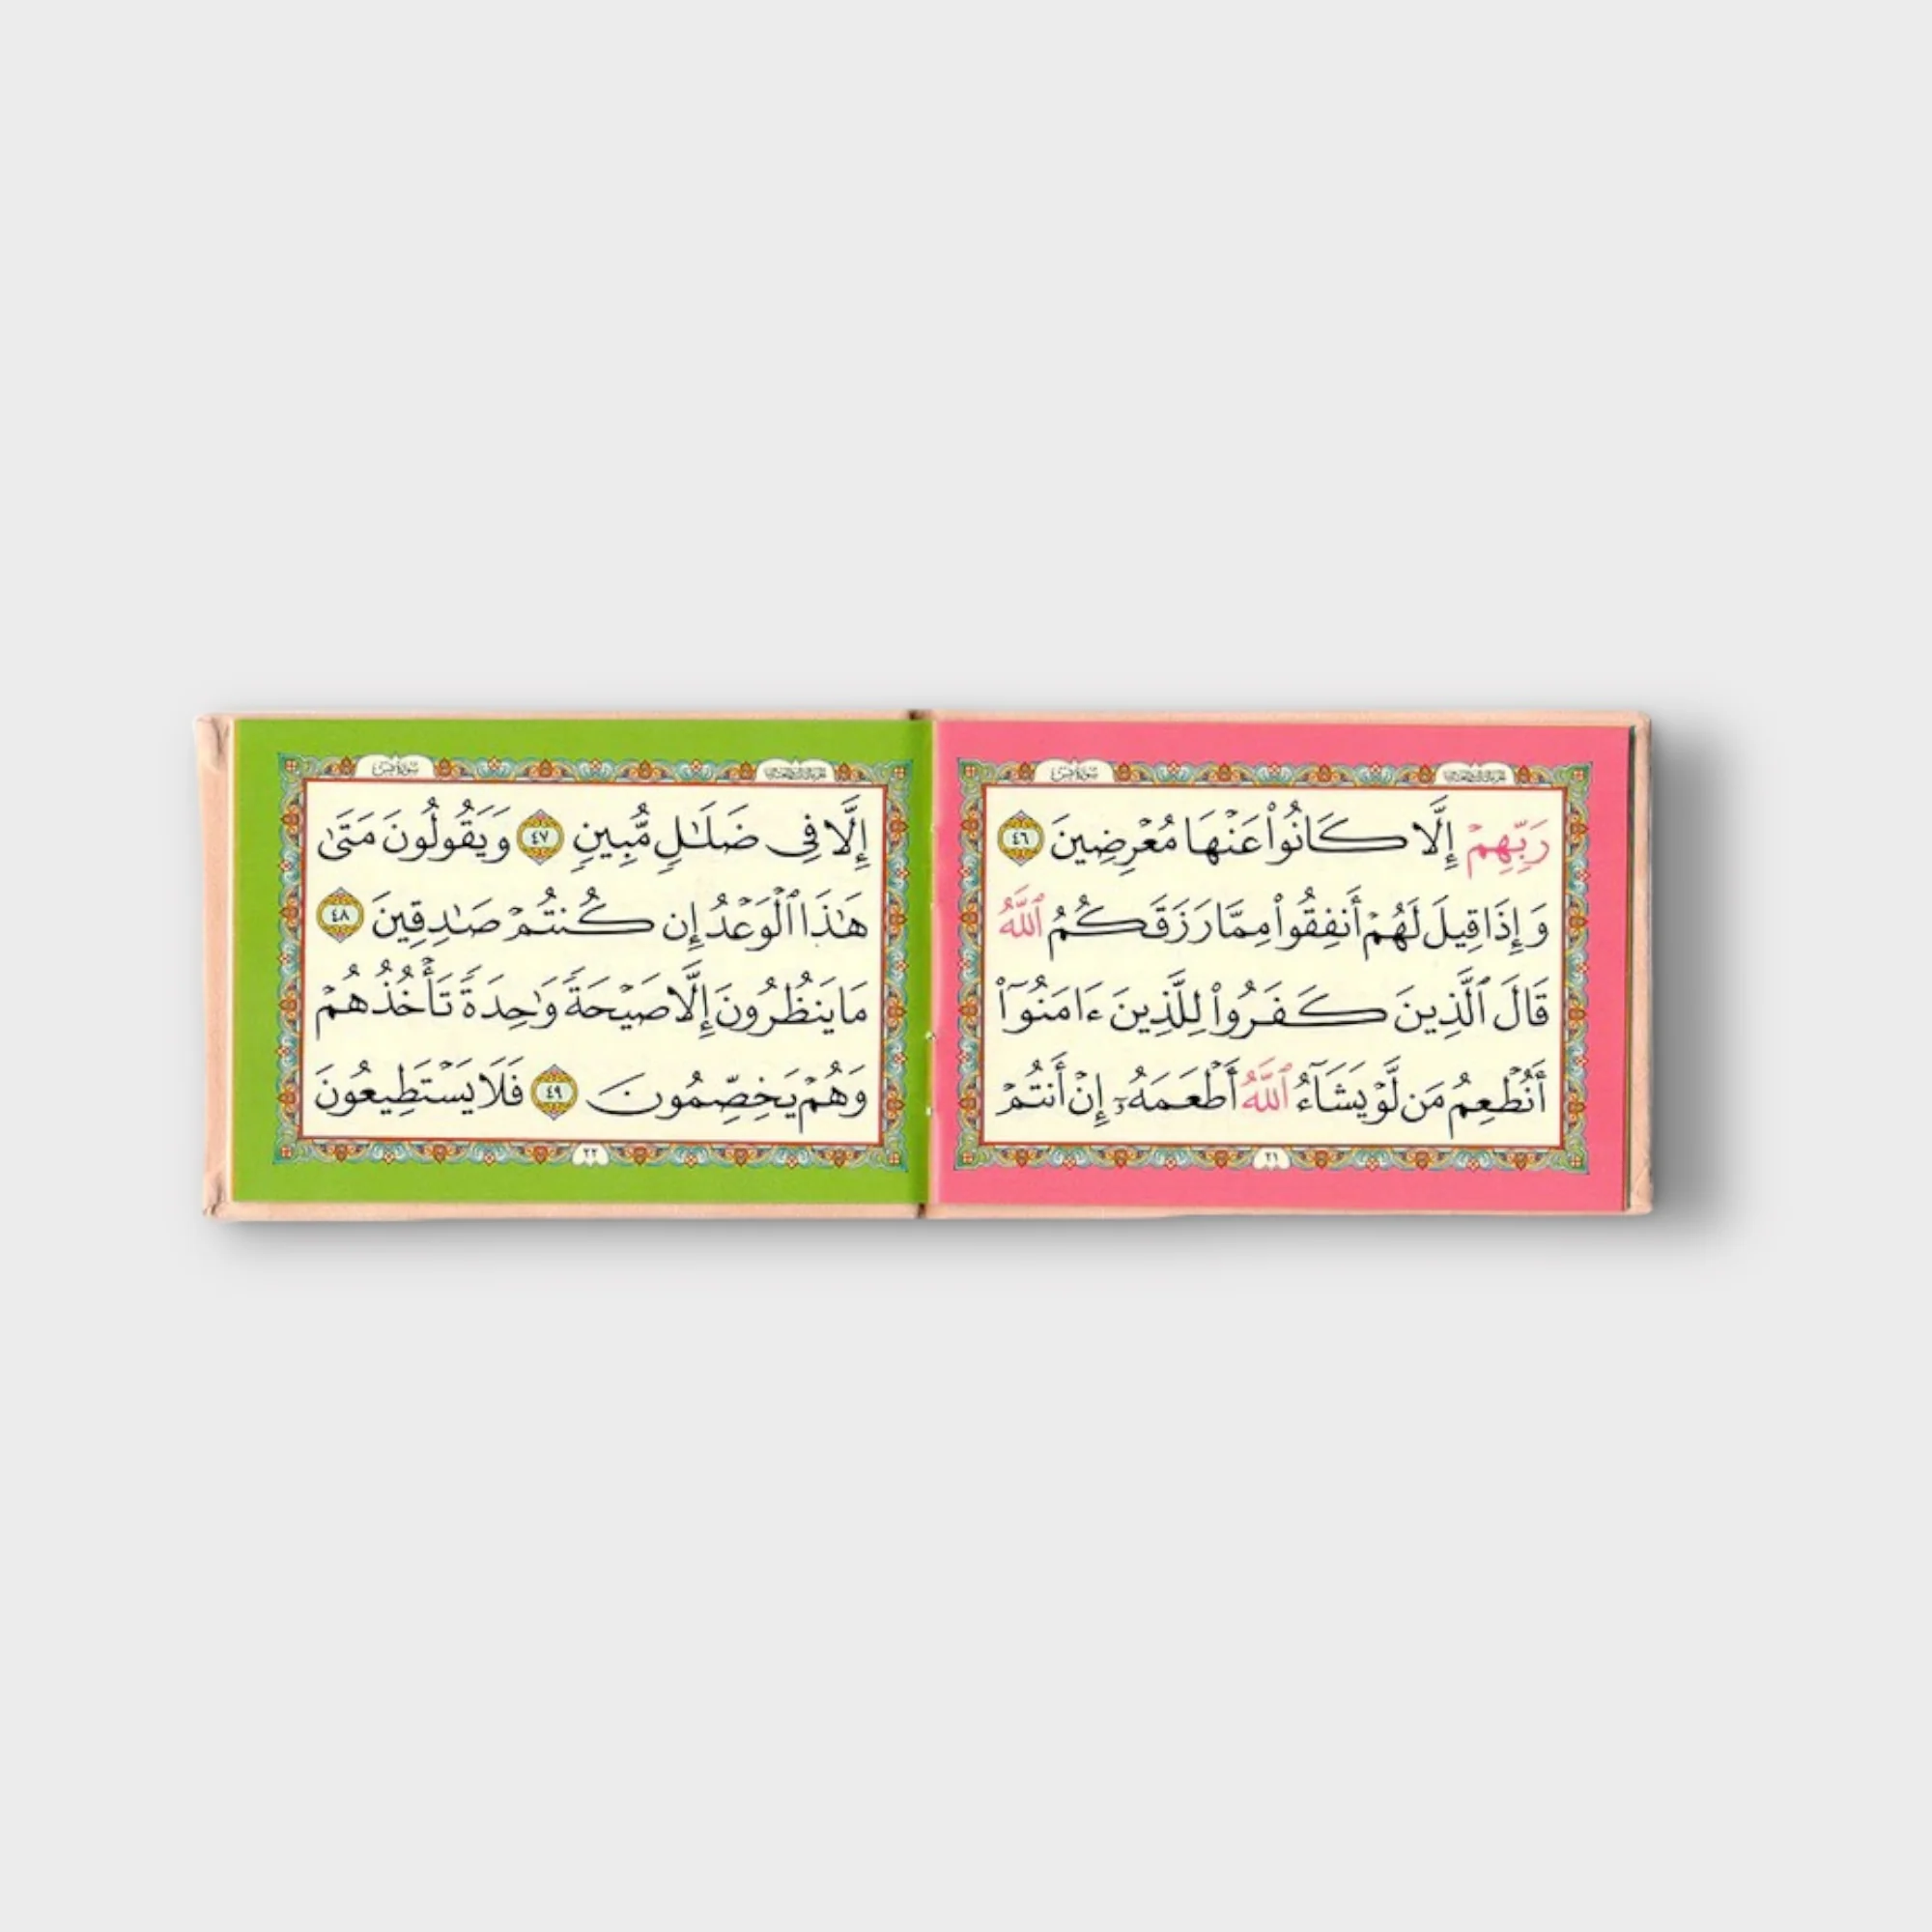 سورة يس
رَبِّهِمْ إِلَّا كَانُوا۟ عَنْهَا مُعْرِضِينَ ٤٦
وَإِذَا قِيلَ لَهُمْ أَنفِقُوا۟ مِمَّا رَزَقَكُمُ ٱللَّهُ
قَالَ ٱلَّذِينَ كَفَرُوا۟ لِلَّذِينَ ءَامَنُوٓا۟
أَنُطْعِمُ مَن لَّوْ يَشَآءُ ٱللَّهُ أَطْعَمَهُۥٓ إِنْ أَنتُمْ
٢١
سورة يس
إِلَّا فِى ضَلَـٰلٍ مُّبِينٍ ٤٧ وَيَقُولُونَ مَتَىٰ
هَـٰذَا ٱلْوَعْدُ إِن كُنتُمْ صَـٰدِقِينَ ٤٨
مَا يَنظُرُونَ إِلَّا صَيْحَةً وَٰحِدَةً تَأْخُذُهُمْ
وَهُمْ يَخِصِّمُونَ ٤٩ فَلَا يَسْتَطِيعُونَ
٢٢